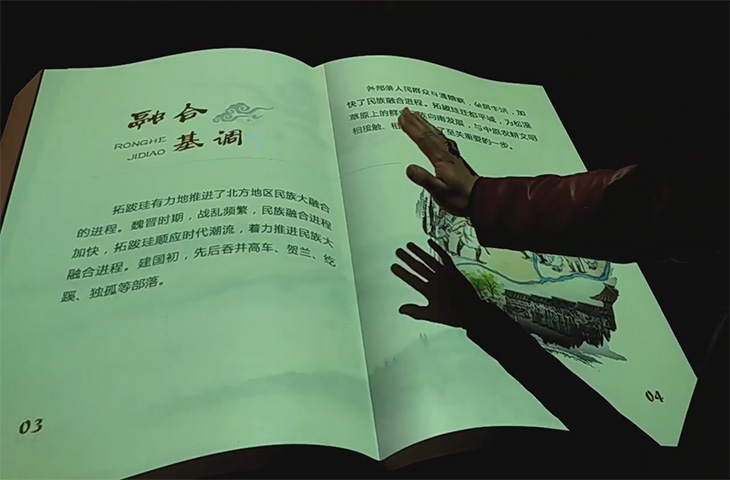 融合
RONGHE
JIDIAO
基调
拓跋珪有力地推进了北方地区民族大融合
的进程。魏晋时期，战乱频繁，民族融合进程
加快，拓跋珪顺应时代潮流，着力推进民族大
融合进程。建国初，先后吞并高车、贺兰、纥
奚、独孤等部落。
03
各部落人民群众互通婚姻，杂居生活，加
快了民族融合进程。拓跋珪迁都平城，为松漠
草原上的群 向南发展，与中原农耕文明
相接触、相 了至关重要的一步。
04